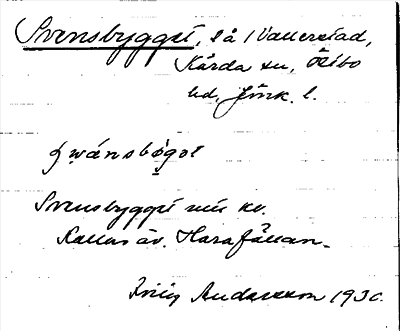 Svensbygget, Lå i Vallerstad,
Kärda sn, Östbo
hd, Jönk. l.
swánsbøgət
Svensbygget
Kallas äv. Harafällan.
Andersson 1930.